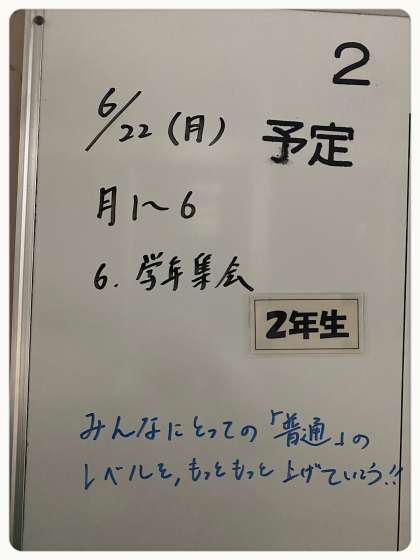 2
予定
6/22(月)
月1~6
6. 学年集会
2年生
みんなにとっての「普通」の
レベルを,もっともっと上げていこう!!